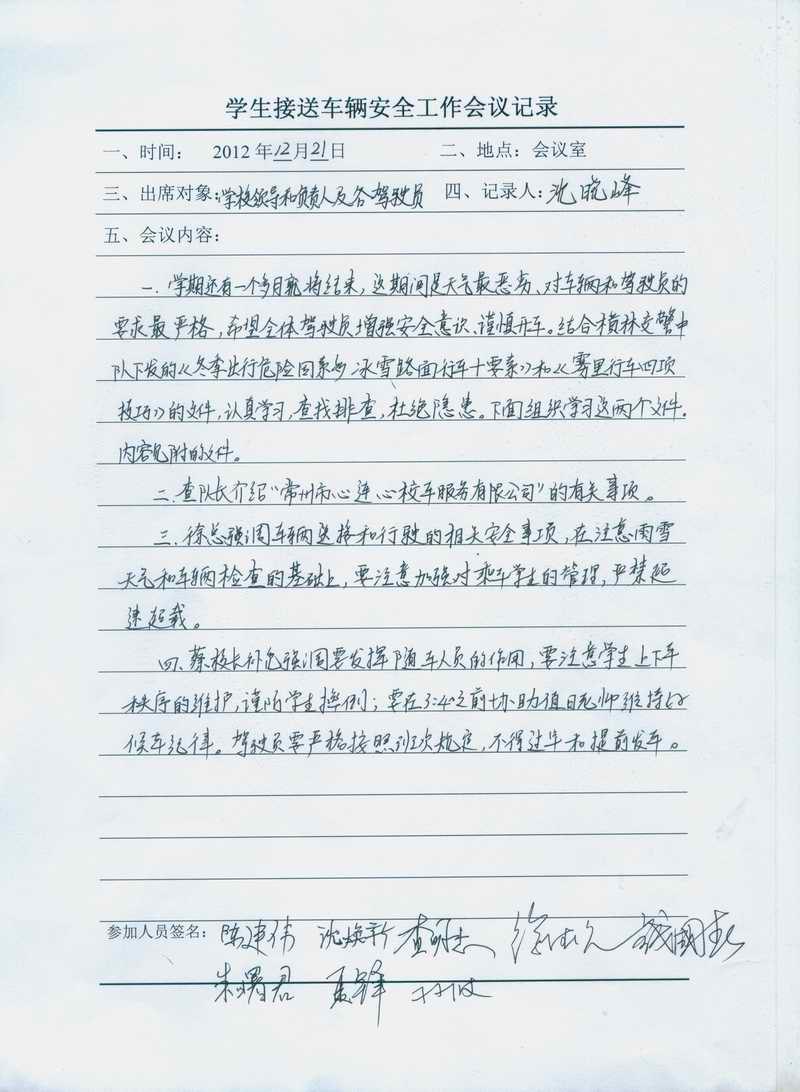 学生接送车辆安全工作会议记录
一、时间： 2012年12月21日 二、地点：会议室
三、出席对象：学校领导和负责人及各驾驶员 四、记录人：沈晓峰
五、会议内容：
一、学期还有一个多月就将结束，这期间是天气最恶劣、对车辆和驾驶员的
要求最严格，希望全体驾驶员增强安全意识、谨慎开车。结合横林交警中
队下发的《冬季出行危险因素多 冰雪路面行车十要素》和《雾里行车四项
技巧》的文件，认真学习，查找排查，杜绝隐患。下面组织学习这两个文件.
内容见附的文件。
二、查队长介绍“常州市心连心校车服务有限公司”的有关事项。
三、徐总强调车辆送接和行驶的相关安全事项，在注意雨雪
天气和车辆检查的基础上，要注意加强对乘车学生的管理，严禁超
速超载。
四、蔡校长补充强调要发挥随车人员的作用，要注意学生上下车
秩序的维护，谨防学生摔倒；要在3:40之前协助值日老师维持好
候车纪律。驾驶员要严格按照班次规定，不得过早和提前发车。
参加人员签名： 陈建伟 沈焕新 查
朱曙君